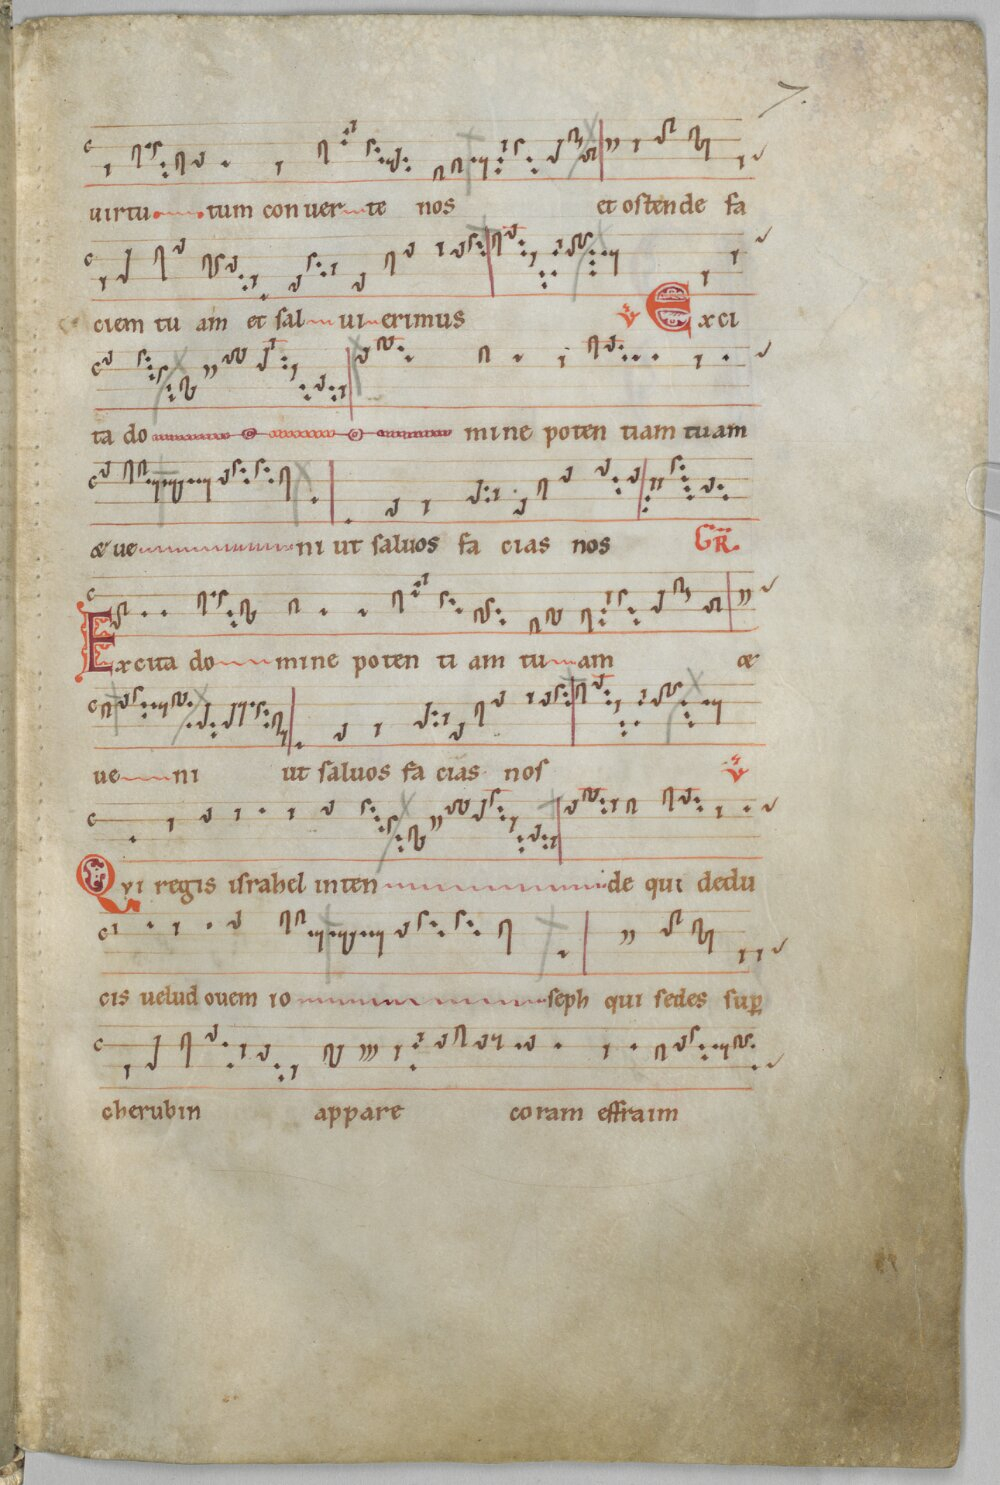 7.
uirtu tum conuer te nos et ostende fa
ciem tu am et sal ui erimus ℣ Exci
ta do mine poten tiam tuam
& ue ni ut saluos fa cias nos GR.
Excita do mine poten ti am tu am &
ue ni ut saluos fa cias nos ℣
Qui regis israhel inten de qui dedu
cis uelud ouem io seph qui sedes sup
cherubin appare coram effraim